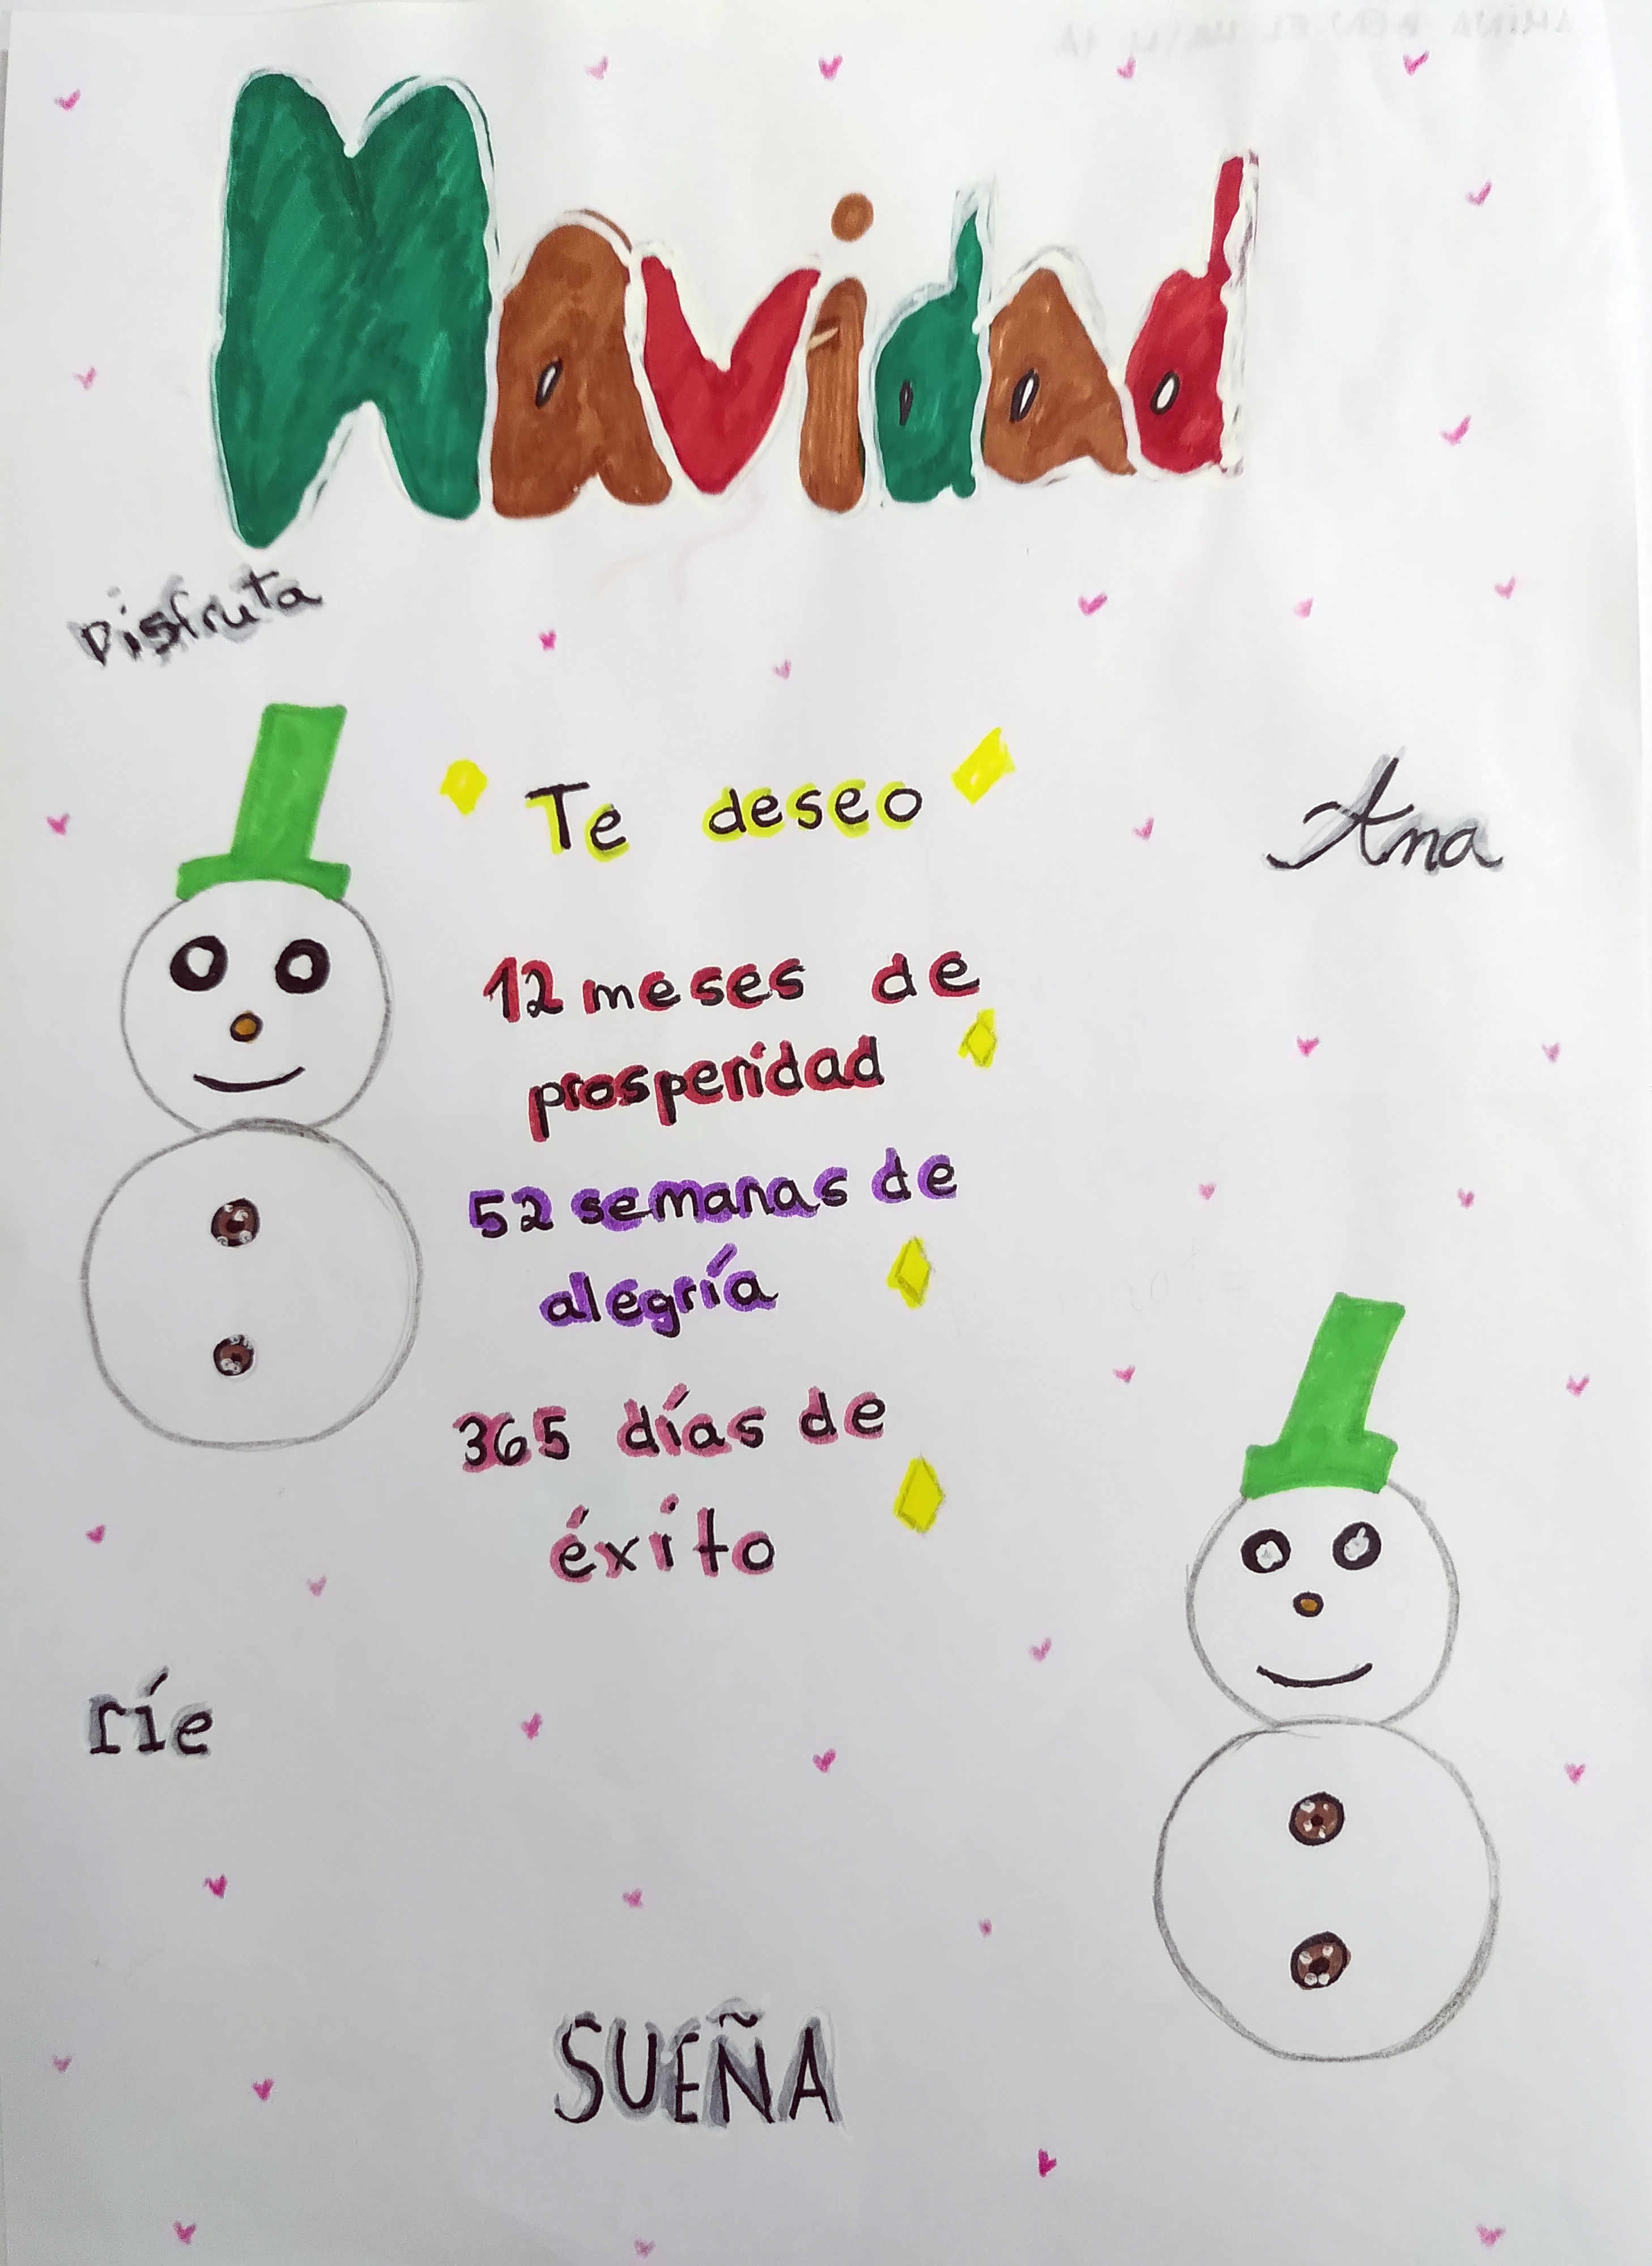 Navidad
Disfruta
Te deseo
Ama
12 meses de
prosperidad
52 semanas de
alegría
365 días de
éxito
ríe
SUEÑA